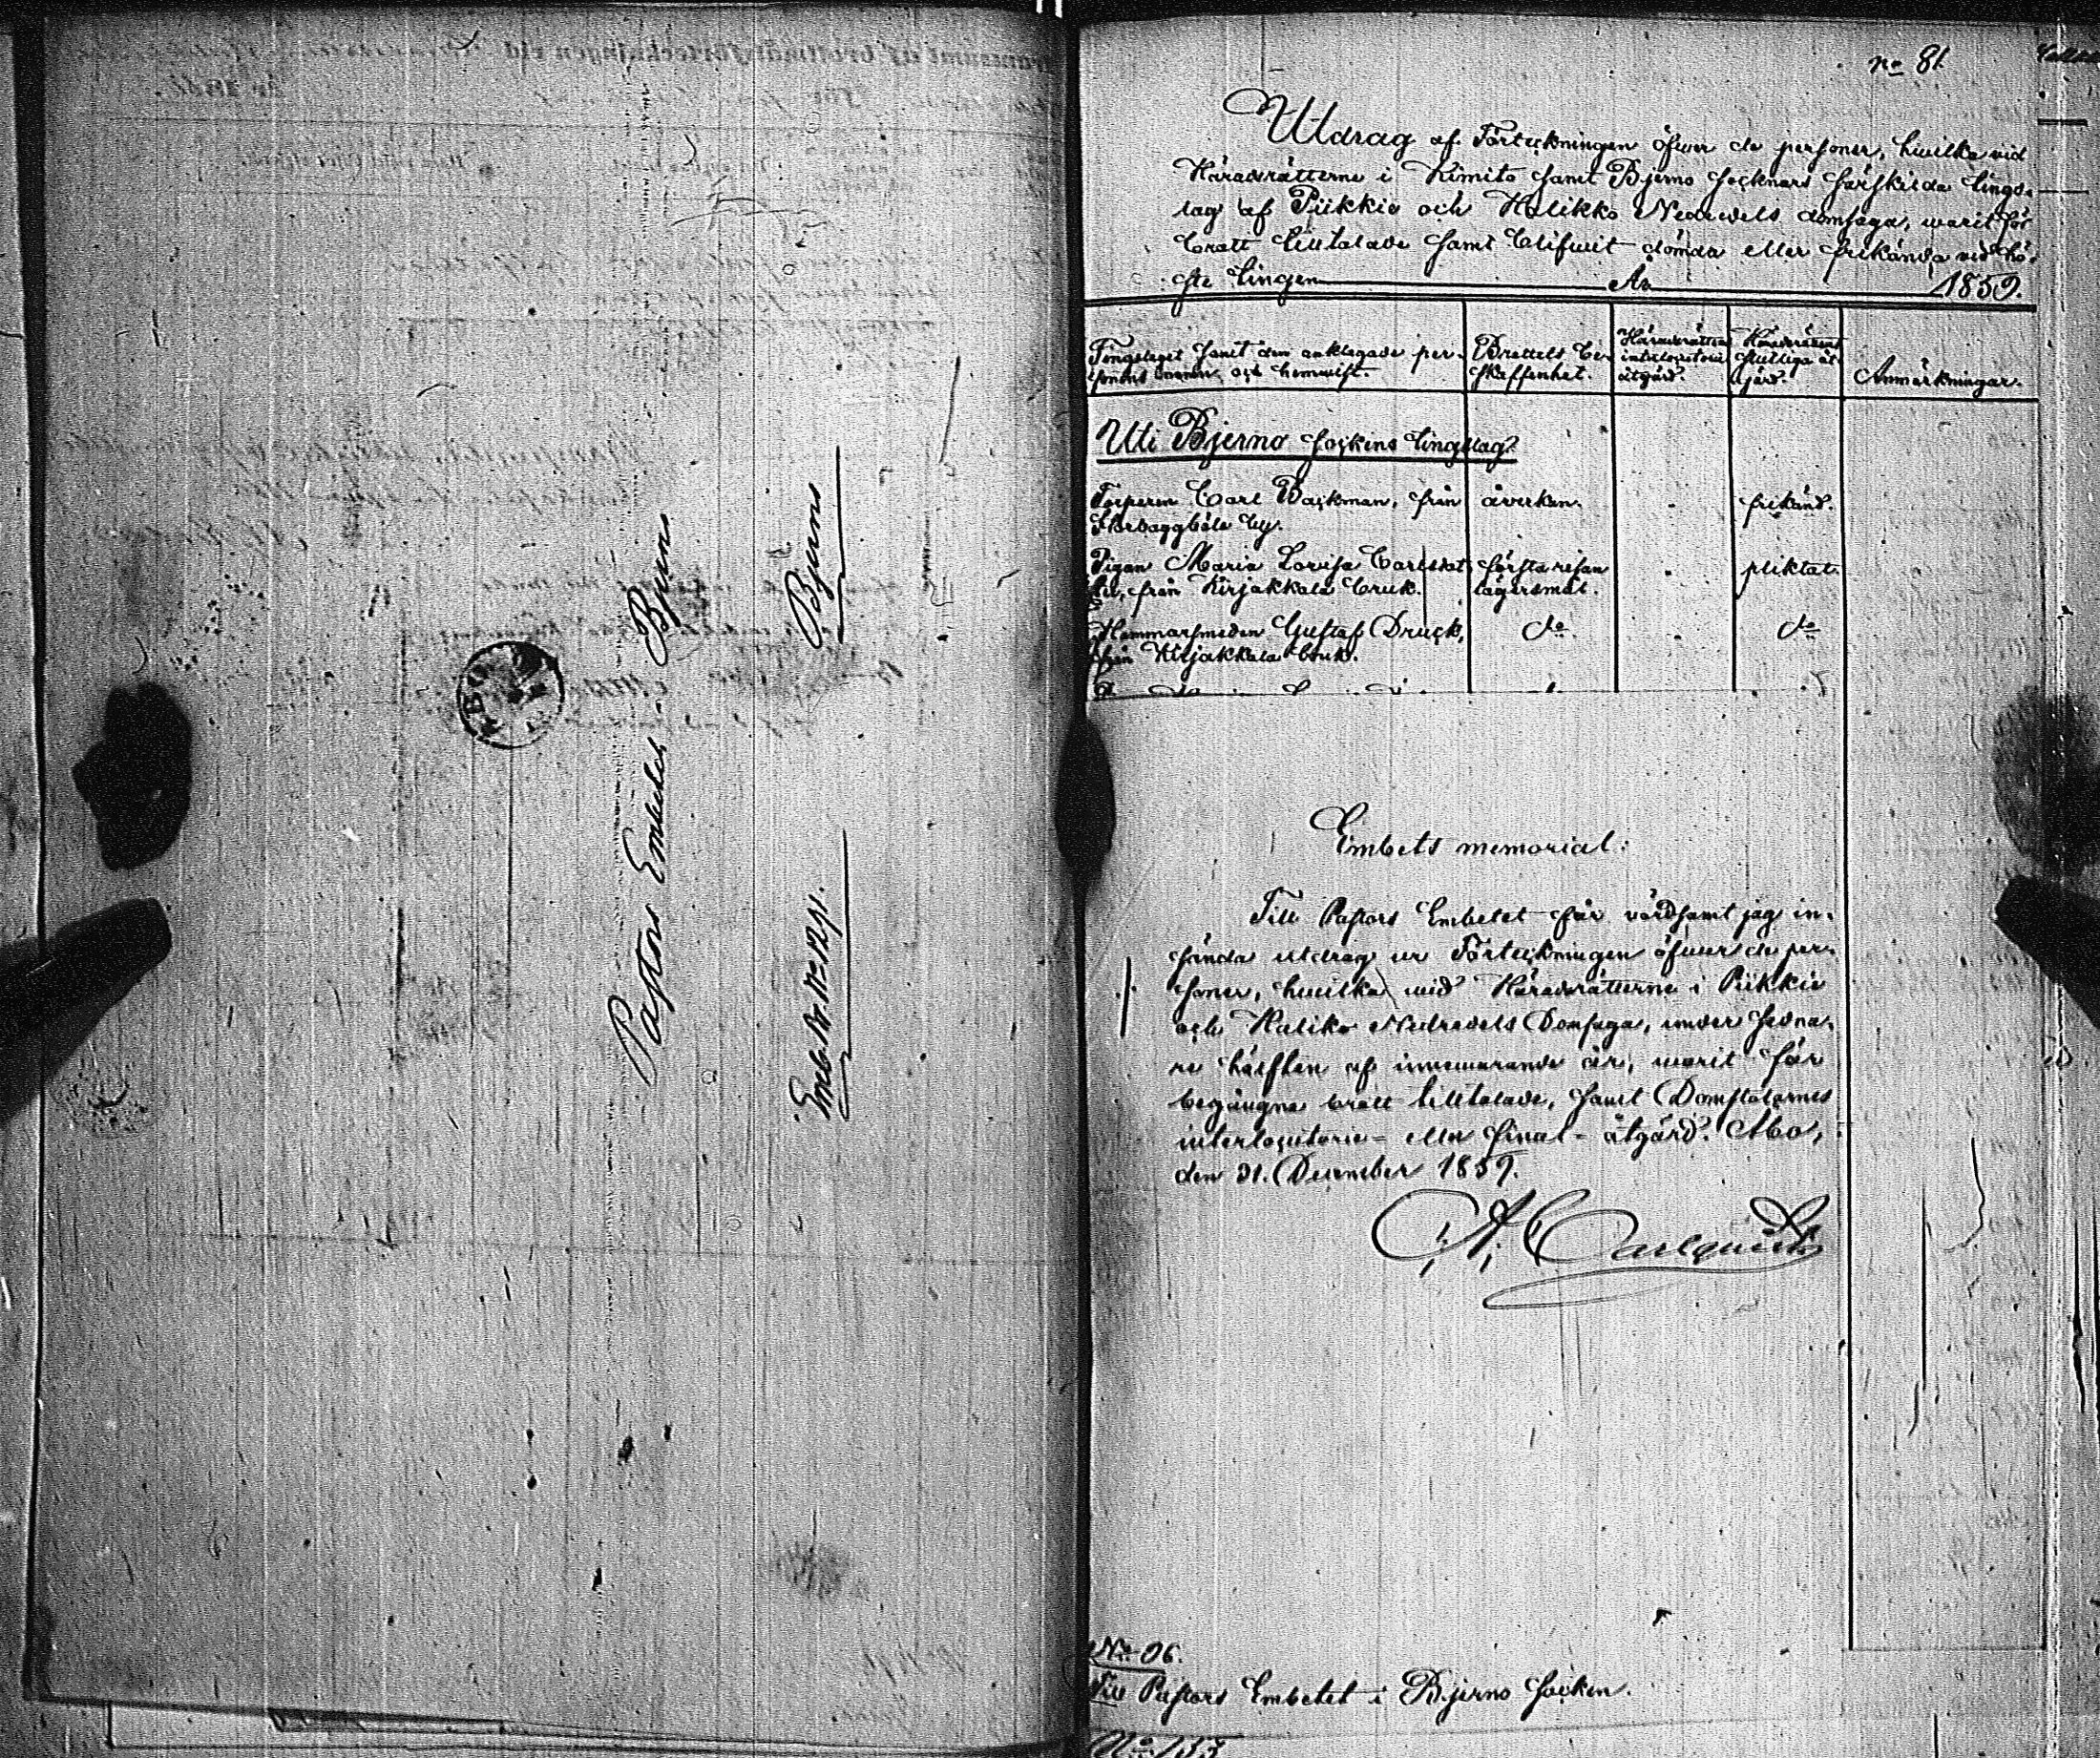 Pastors Embetet, Bjerno
Bjerno
ÅBO
No 81.
Utdrag af Förteckningen öfver de personer, hvilka vid
Häradsrätterne i Kimito samt Bjerno Socknars särskilda tings-
lag af Piikkie och Halikko Nedredels domsaga, warit för
brott tilltalade samt blifwit dömda eller frikända vid hö-
ste tingen År 1859.
Tingslaget samt den anklagade per-
sonens namn och hemwist.
Brottets be-
skaffenhet.
Häradsrättens
interlocutorie
åtgård.
Häradsrättens
slutliga åt-
gård.
Anmärkningar.
Uti Bjerno Sockens tingslag.
Torparen Carl Backman, från åverkan. frikänd.
by.
Pigan Maria Lovisa Carlsdot- första resan pliktat.
ter, från Kirjakkala bruk. lägersmål.
Hammarsmeden Gustaf Druck, do do
från Kirjakkala bruk.
Embets memorial:
Till Pastors Embetet får vördsamt jag in-
sända utdrag ur Förteckningen öfwer de per-
soner, hwilka wid Häradsrätterne i Piikkie
och Haliko Nedredels Domsaga, under sedna-
re hälften af innewarande år, warit för
begångne brott tilltalade, samt Domstolarnes
interlocutorie- eller final-åtgård. Åbo,
den 31. December 1859.
Carlquist
No 96.
Till Pastors Embetet i Bjerno Socken.